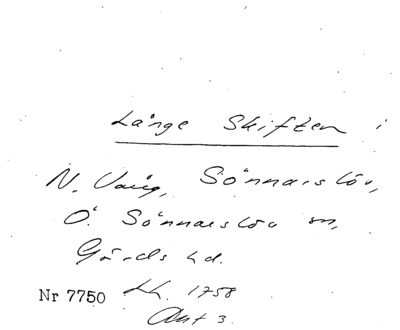 Långe Skiften i
N. Vång, Sönnarslöv,
Ö. Sönnarslöv sn,
Gärds hd.
Nr 7750 Lh. 1758
Akt 3.